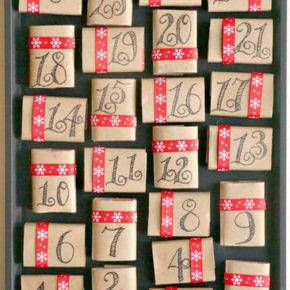 18 19 20 21
14 15 16 17
10 11 12 13
6 7 8 9
4